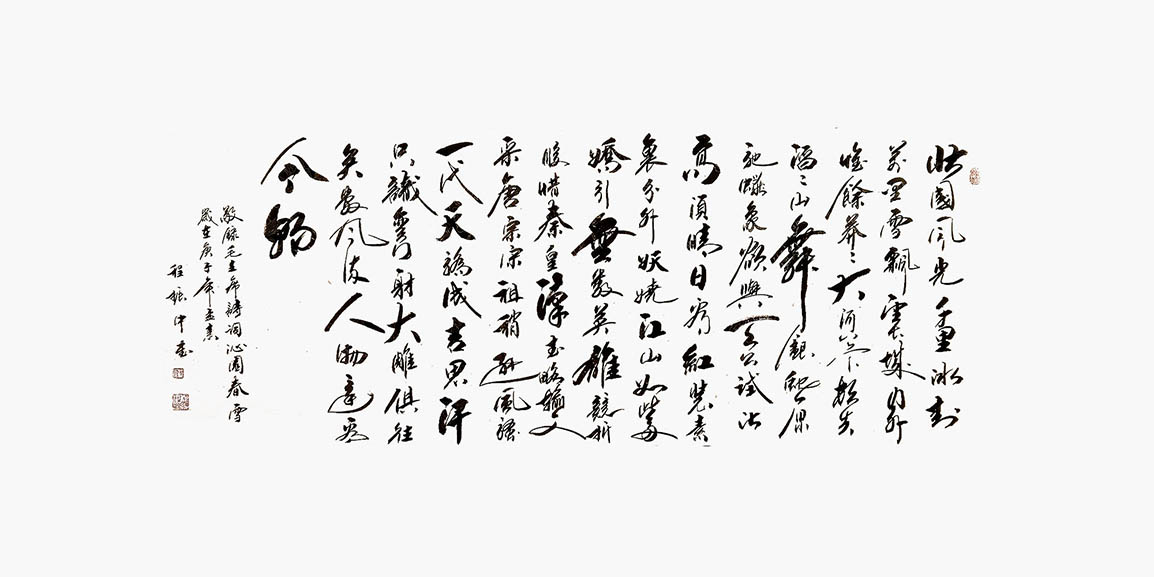 北國風光千里冰封
萬里雪飄望長城內外
惟餘莽莽大河上下頓失
滔滔山舞銀蛇原
馳蠟象欲與天公試比
高須晴日看紅裝素
裹分外妖嬈江山如此多
嬌引無數英雄競折
腰惜秦皇漢武略輸文
采唐宗宋祖稍遜風騷
一代天驕成吉思汗
只識彎弓射大雕俱往
矣數風流人物還看
今朝
敬錄毛主席詩詞沁園春雪
歲在庚子年孟
程振中書